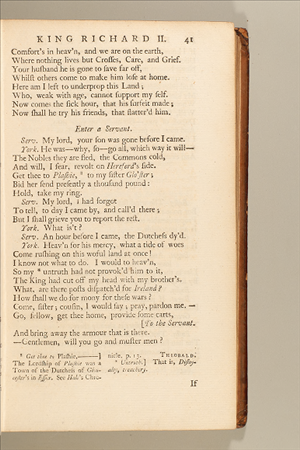 KING RICHARD II. 41
Comfort's in heav'n, and we are on the earth,
Where nothing lives but Crosses, Care, and Grief.
Your husband he is gone to save far off,
Whilst others come to make him lose at home.
Here am I left to underprop this Land;
Who, weak with age, cannot support my self.
Now comes the sick hour, that his surfeit made;
Now shall he try his friends, that flatter'd him.
Enter a Servant.
Serv. My lord, your son was gone before I came.
York. He was—why, so—go all, which way it will—
The Nobles they are fled, the Commons cold,
And will, I fear, revolt on Hereford's side.
Get thee to Plashie, ⁵ to my sister Glo'ster;
Bid her send presently a thousand pound:
Hold, take my ring.
Serv. My lord, I had forgot
To tell, to day I came by, and call'd there;
But I shall grieve you to report the rest.
York. What is't?
Serv. An hour before I came, the Dutchess dy'd.
York. Heav'n for his mercy, what a tide of woes
Come rushing on this woful land at once!
I know not what to do. I would to heav'n,
So my * untruth had not provok'd him to it,
The King had cut off my head with my brother's.
What, are there posts dispatch'd for Ireland?
How shall we do for mony for these wars?
Come, sister; cousin, I would say; pray, pardon me.—
Go, fellow, get thee home, provide some carts,
[To the Servant.
And bring away the armour that is there.
—Gentlemen, will you go and muster men?
Get thee to Plashie,———]
The Lordship of Plashie was a
Town of the Dutchess of Glou-
cester's in Essex. See Hall's Chro-
nicle. p. 13. THEOBALD.
* Untruth.] That is, Disloy-
alty, treachery.
If